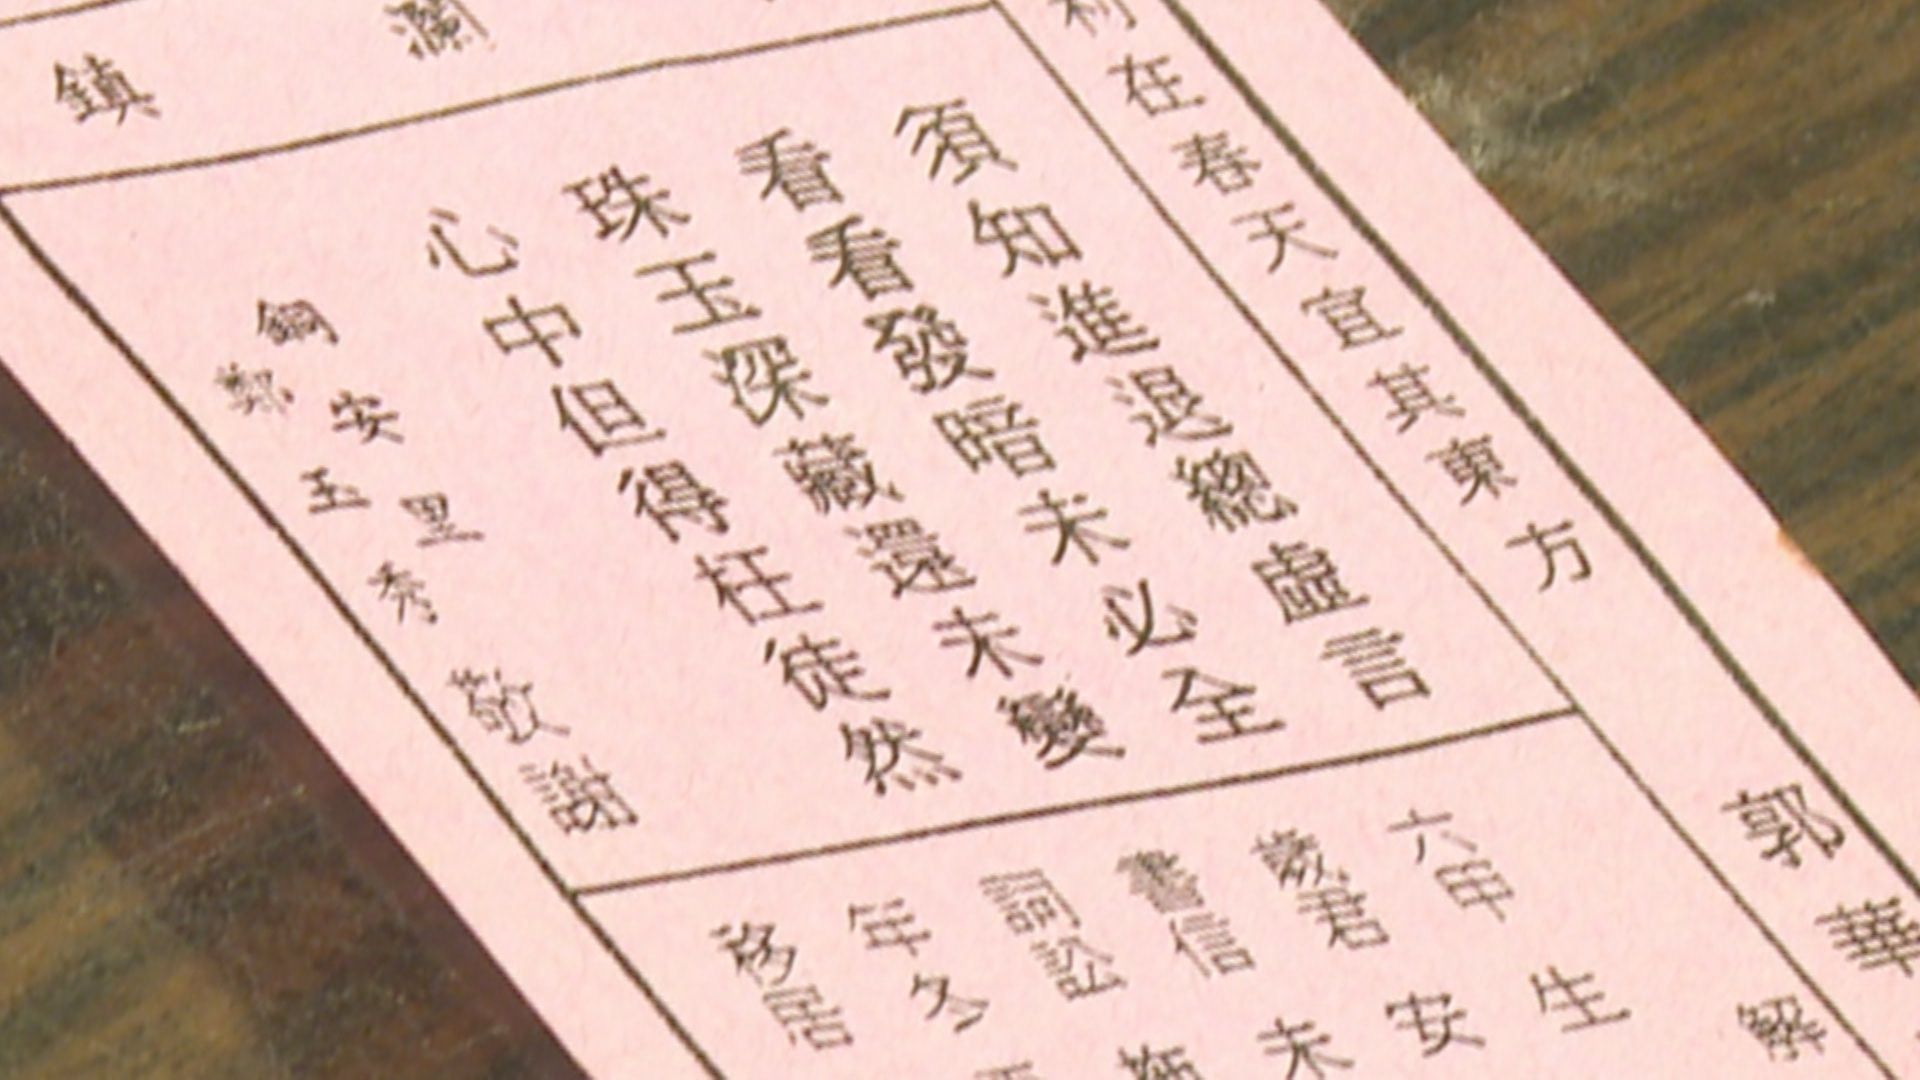 鎮 瀾
利在春天宜其東方
須知進退總虛言
看看發暗未必全
珠玉深藏還未變
心中但得枉徒然
銅安里
鄭玉秀
敬謝
郭華
解
六甲 生
歲君 安
書信 未
詞訟
年冬
移居